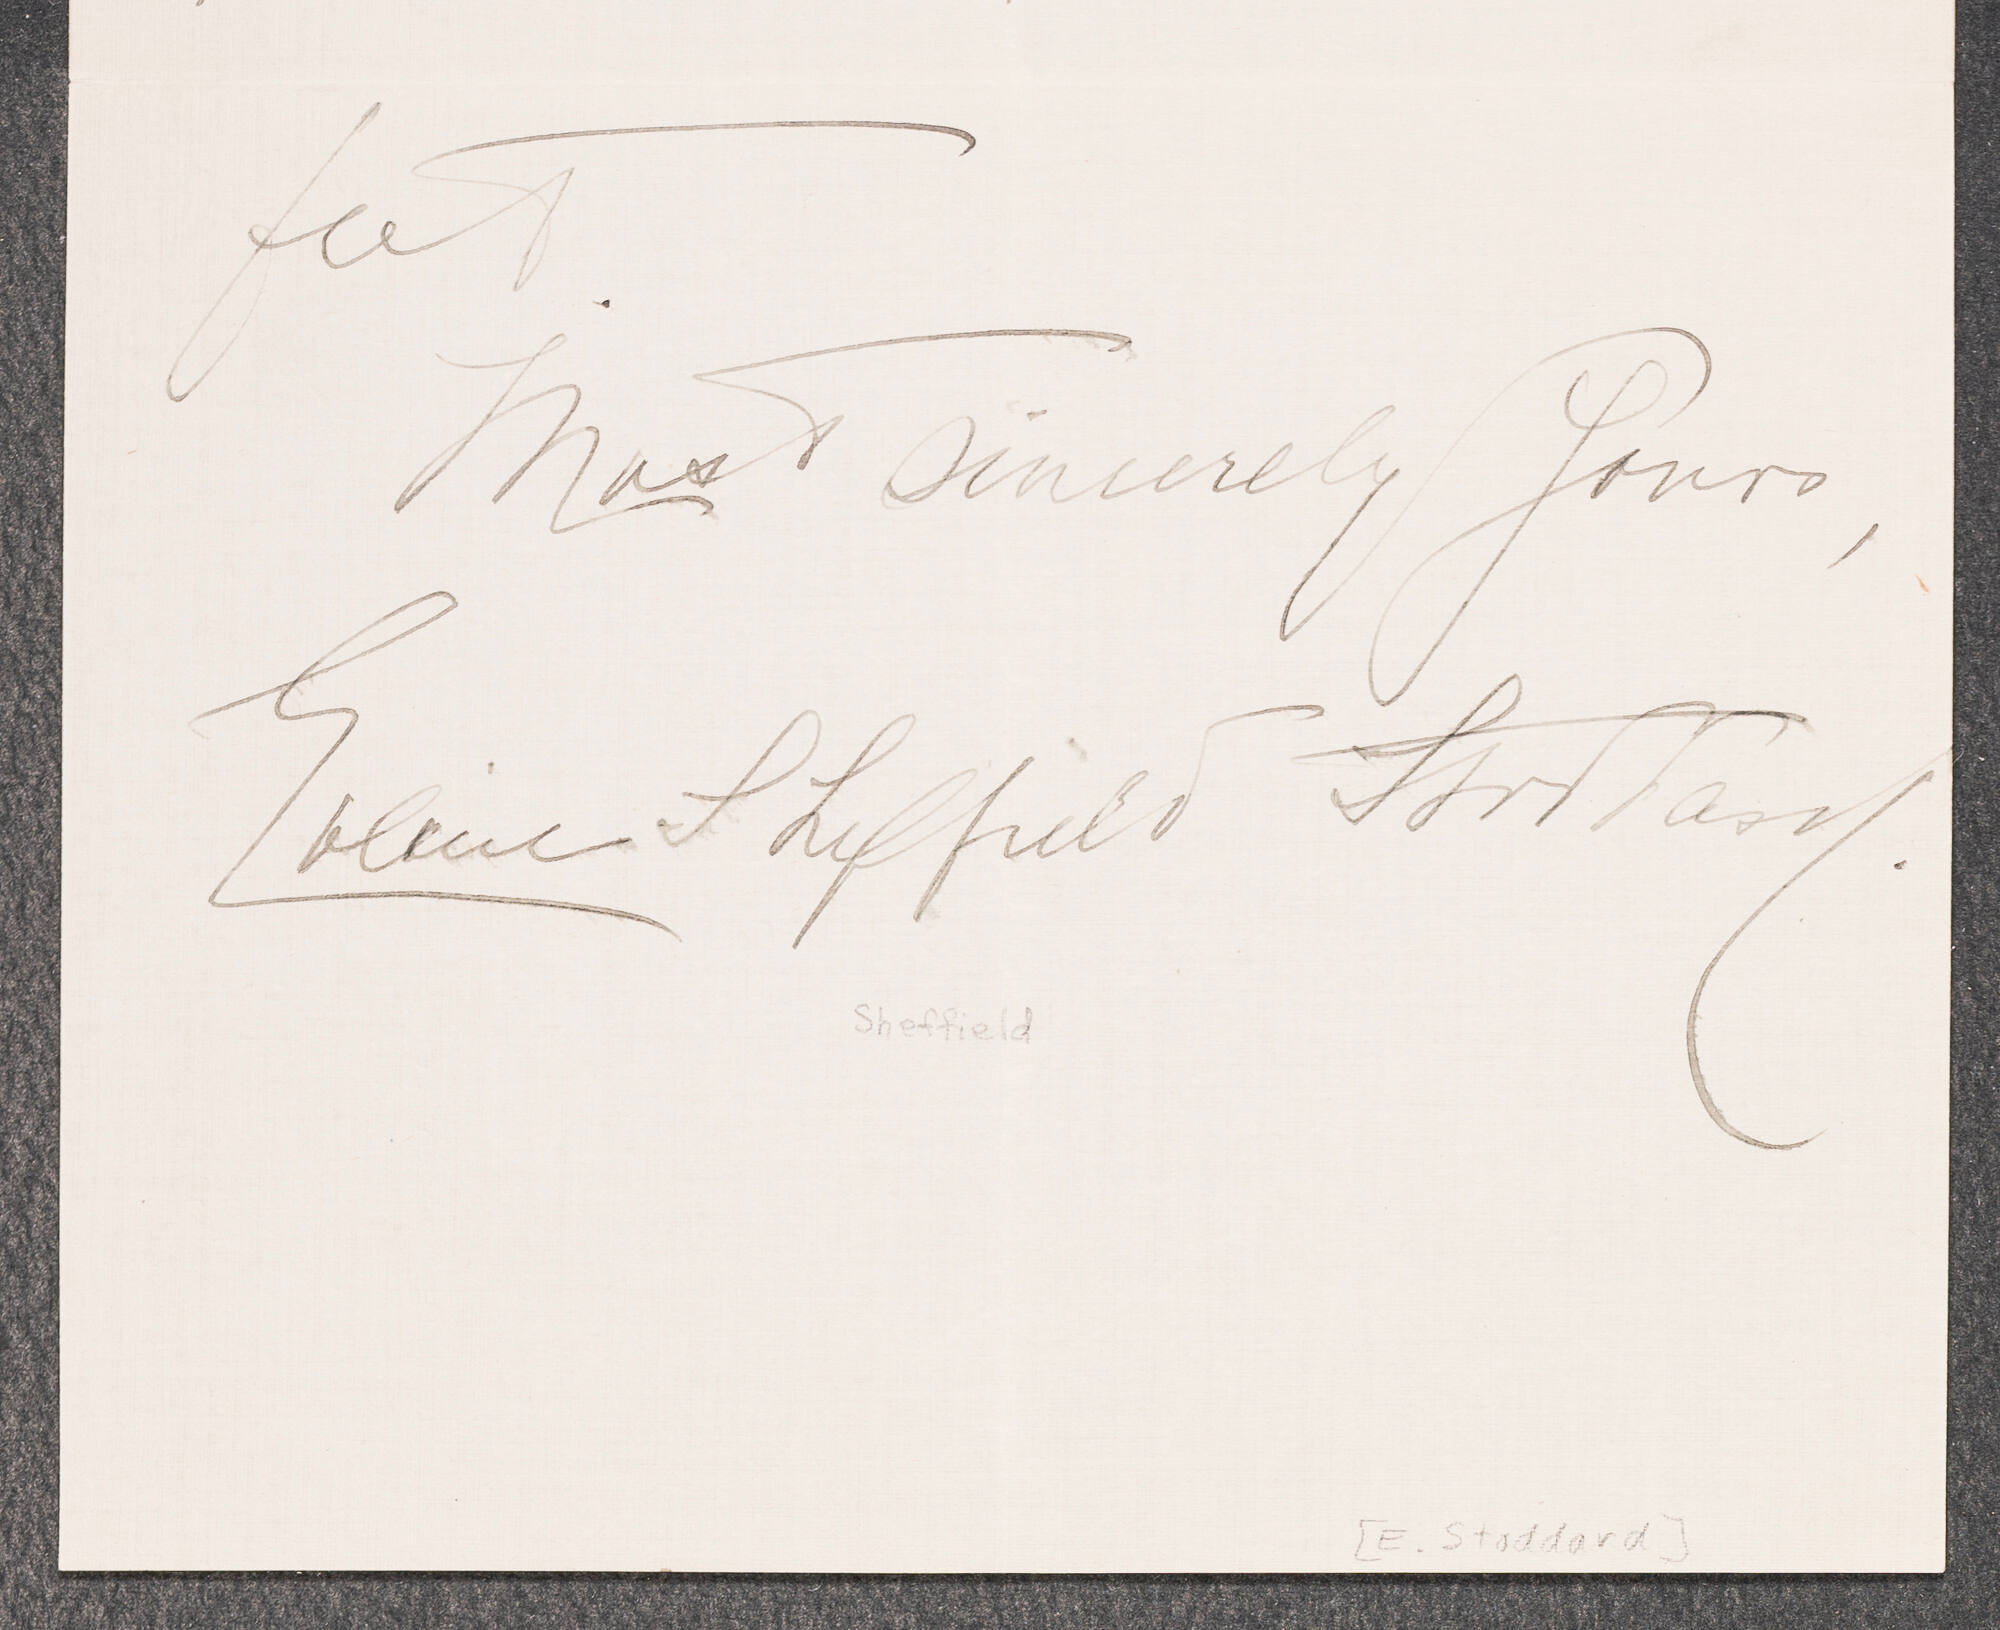 feet.
Most sincerely Yours,
Sheffield Stoddard.
Sheffield
[E. Stoddard]